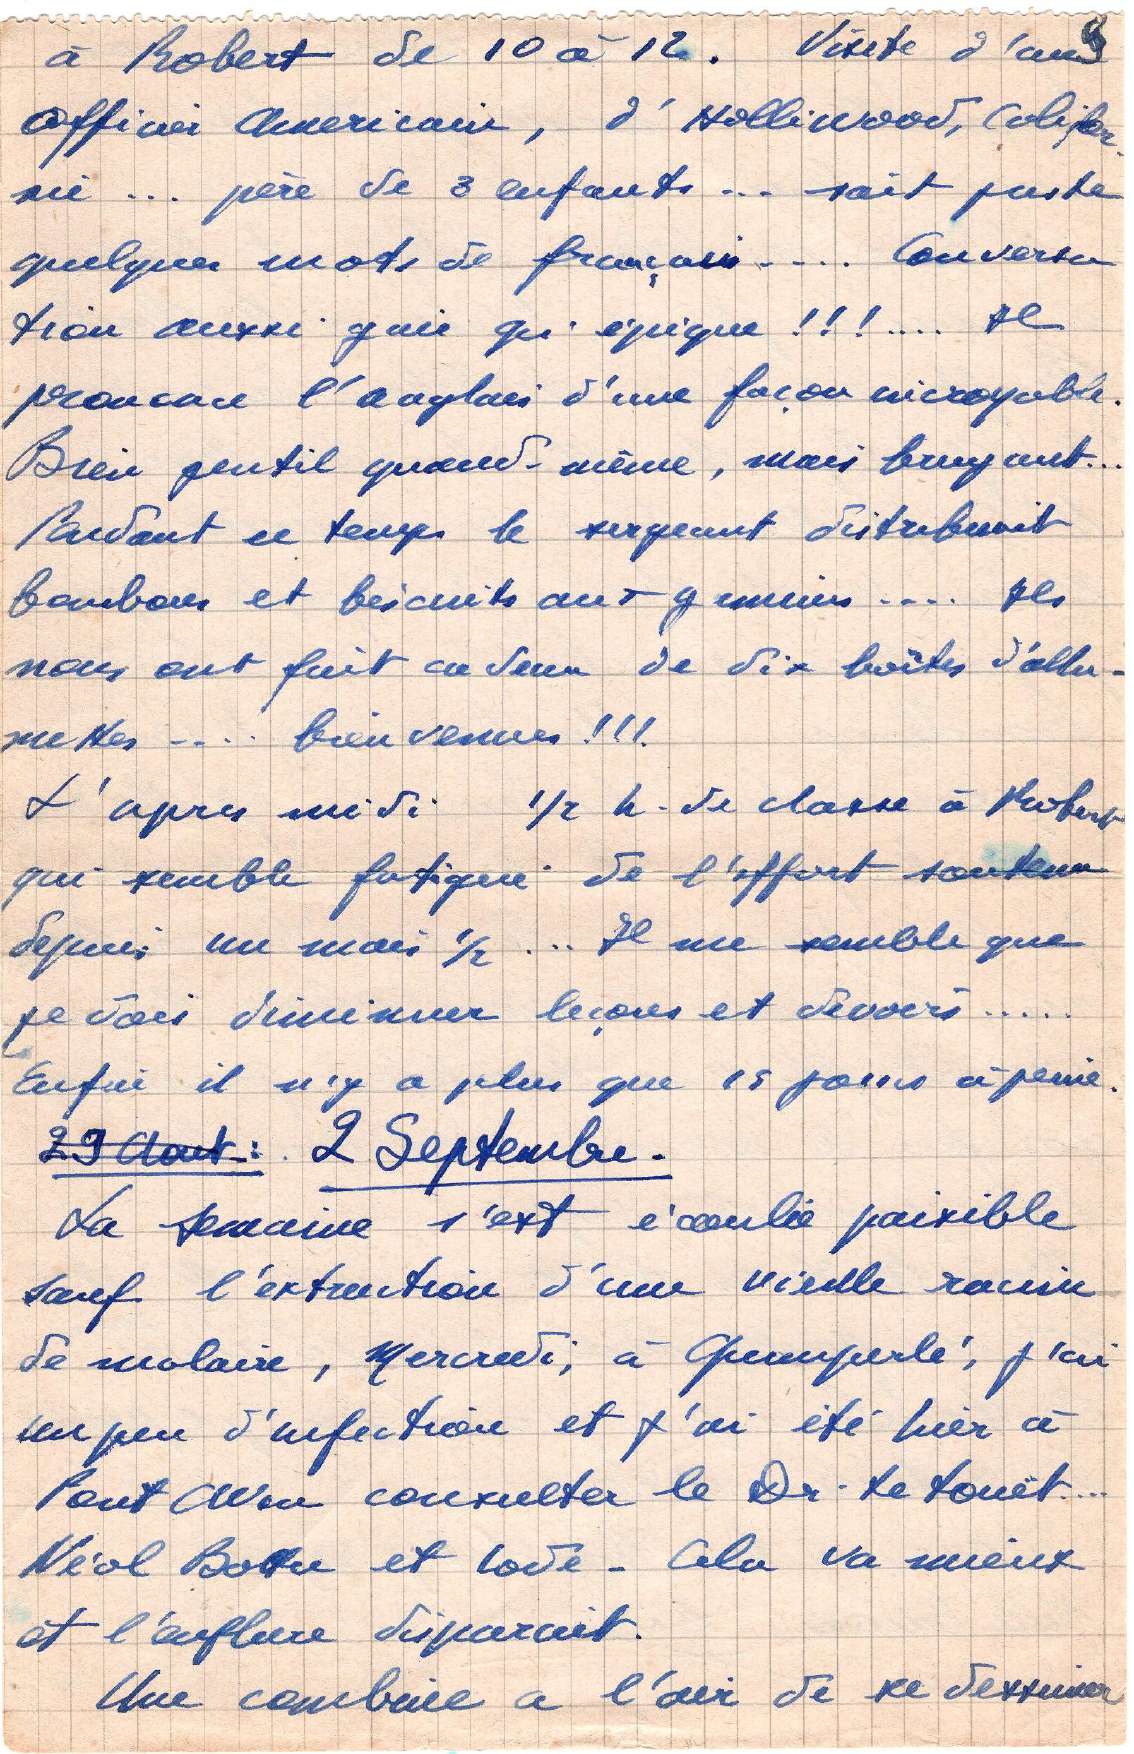 9
à Robert de 10 à 12. Visite d'un
officier Americain, d'Holliwood, Califor-
nie ... père de 3 enfants ... sait juste
quelques mots de français .... Conversa
tion aussi gaie qu'épique !!! .... Il
prononce l'anglais d'une façon incroyable.
Bien gentil quand-même, mais bruyant...
Pendant ce temps le sergeant distribuait
bonbons et biscuits aux gamins .... Ils
nous ont fait cadeau de dix boîtes d'allu-
mettes .... bienvenues !!!
L'apres midi 1/2 h. de classe à Robert
qui semble fatigué de l'effort soutenu
depuis un mois 1/2 ... Il me semble que
je dois diminuer leçons et devoirs .....
Enfin il n'y a plus que 15 jours à peine.
29 Aout : 2 Septembre.
La semaine s'est écoulée paisible
sauf l'extraction d'une vieille racine
de molaire, Mercredi, à Quimperlé, j'ai
un peu d'infection et j'ai été hier à
Pont Aven consulter le Dr. ....
Néol Bottu et iode - Cela va mieux
et l'enflure disparait.
Une combine a l'air de se dessiner